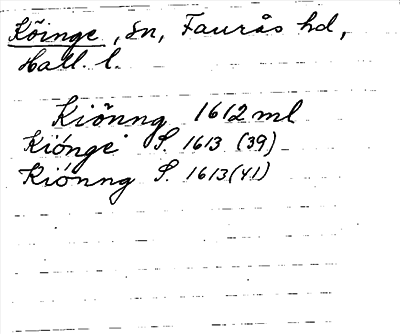 Köinge, sn, Faurås hd,
Hall. l.
Kiönng 1612 ml
Kiónge S. 1613 (39)
Kiónng S. 1613 (41)